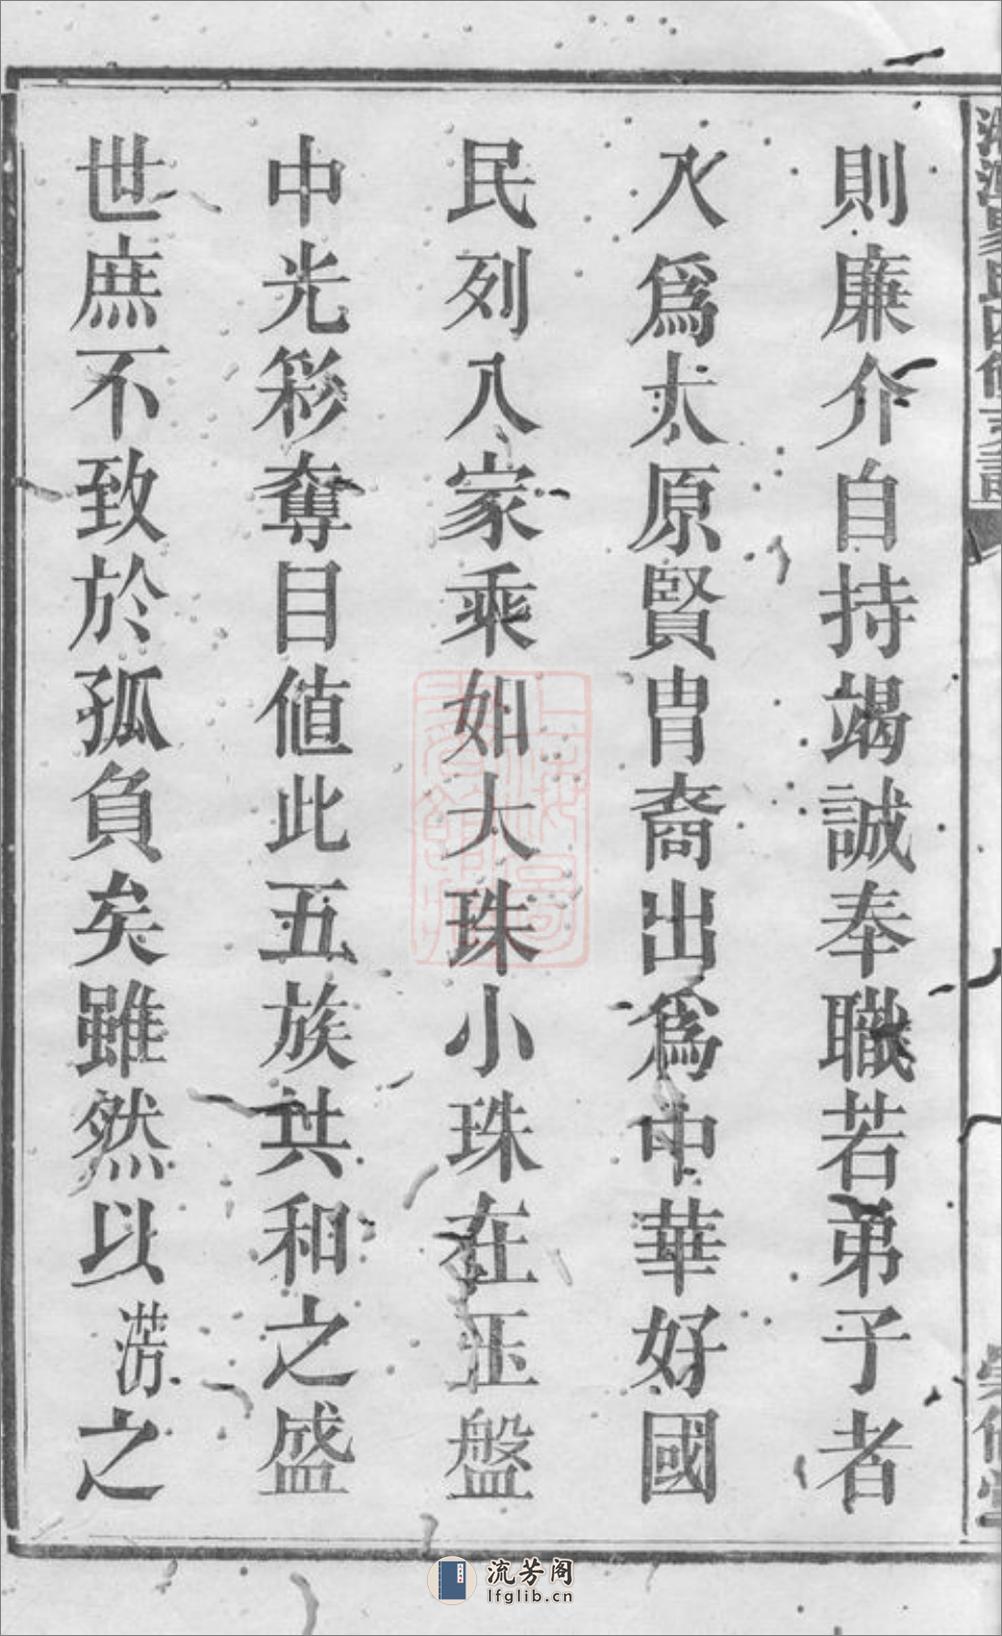 則廉介自持竭誠奉職若弟子者
入爲太原賢胄裔出爲中華好國
民列入家乘如大珠小珠在玉盤
中光彩奪目值此五族共和之盛
世庶不致於孤負矣雖然以淓之
流芳阁
lfglib.cn